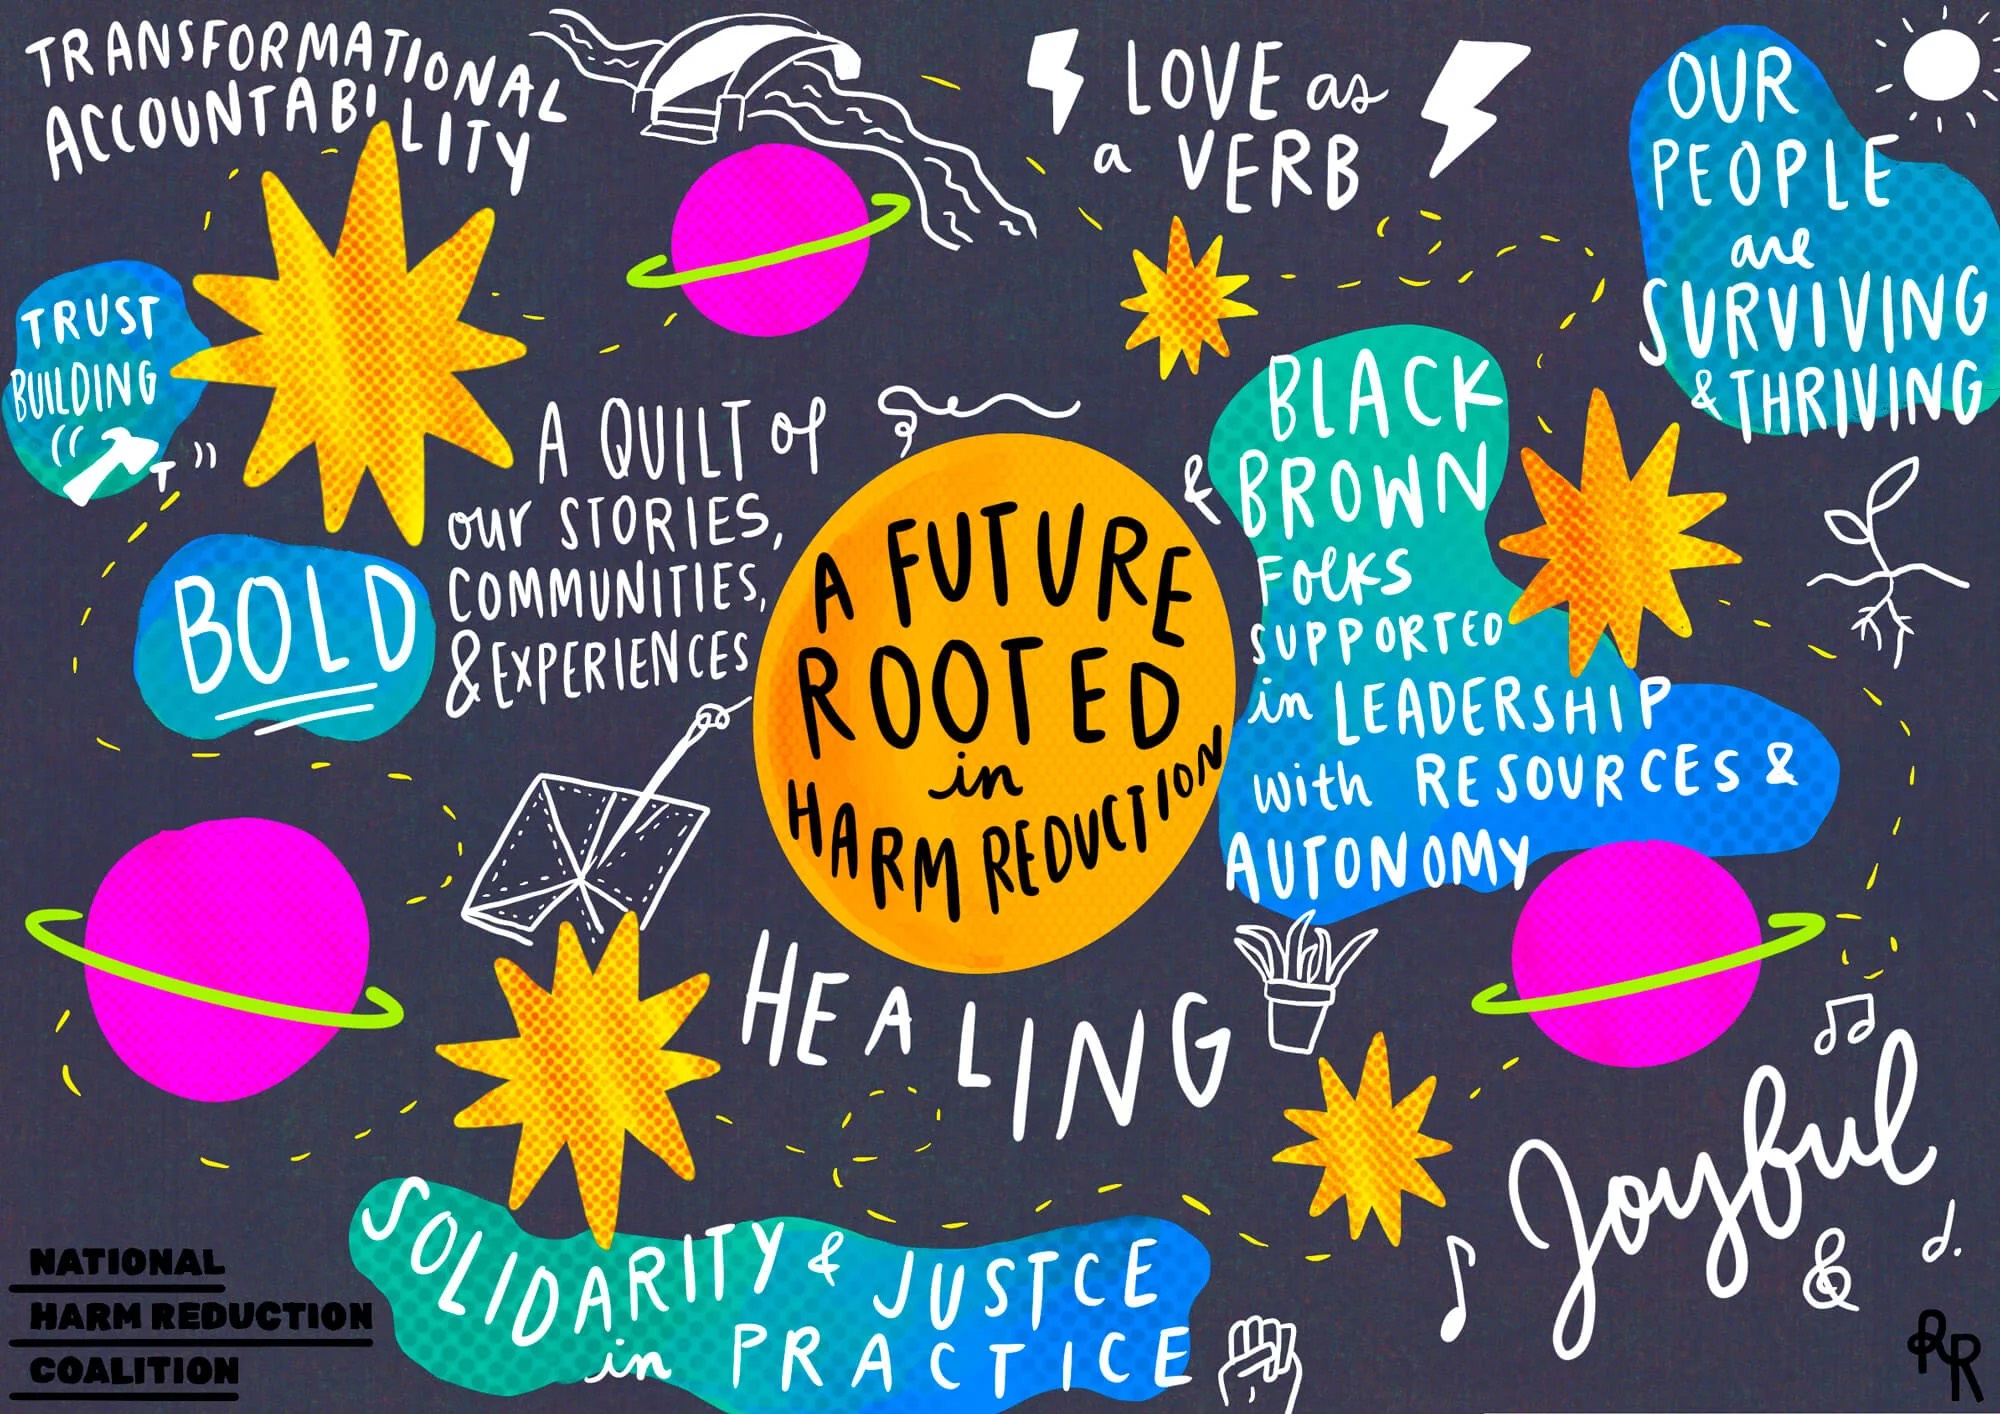 TRANSFORMATIONAL
ACCOUNTABILITY
LOVE as
a VERB
OUR
PEOPLE
are
SURVIVING
& THRIVING
TRUST
BUILDING
A QUILT of
our STORIES,
COMMUNITIES,
& EXPERIENCES
BOLD
A FUTURE
ROOTED
in
HARM REDUCTION
BLACK
& BROWN
FOLKS
SUPPORTED
in LEADERSHIP
with RESOURCES &
AUTONOMY
HEALING
Joyful
SOLIDARITY & JUSTCE
in PRACTICE
NATIONAL
HARM REDUCTION
COALITION
RR